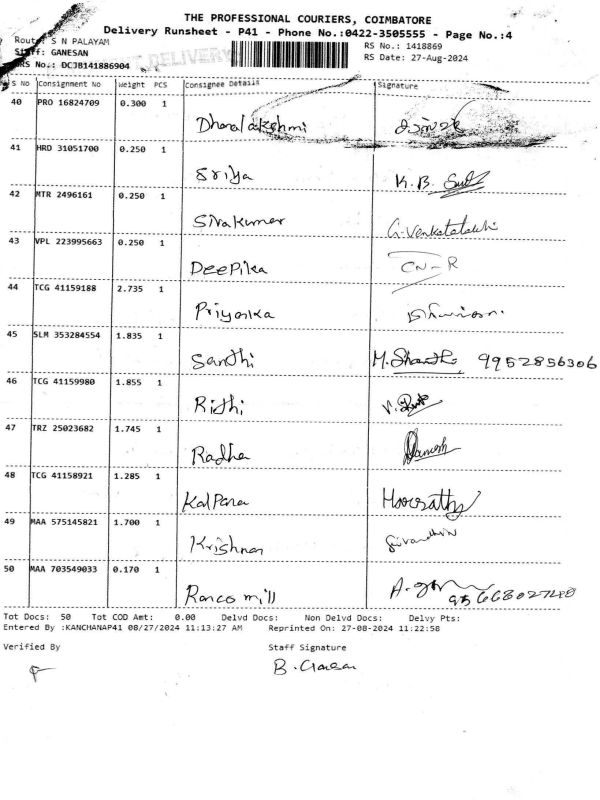 THE PROFESSIONAL COURIERS, COIMBATORE
Delivery Runsheet - P41 - Phone No.:0422-3505555 - Page No.:4
Route: S N PALAYAM
RS No.: 1418869
Staff: GANESAN
RS Date: 27-Aug-2024
DELIVERY
RS No.: DCJB141886904
S No Consignment No Weight PCS Consignee Details Signature
40 PRO 16824709 0.300 1
Dhanalakshmi
41 HRD 31051700 0.250 1
Sriya K.B.
42 MTR 2496161 0.250 1
Sivakumar G.Venkatalakshi
43 VPL 223995663 0.250 1
Deepika CN-R
44 TCG 41159188 2.735 1
Priyanka
45 SLM 353284554 1.835 1
Santhi M.Shanthi 9952856306
46 TCG 41159980 1.855 1
Rithi
47 TRZ 25023682 1.745 1
Radha Damesh
48 TCG 41158921 1.285 1
Kalpana Moorathy
49 MAA 575145821 1.700 1
Krishnan
50 MAA 703549033 0.170 1
Ranco mill
Tot Docs: 50 Tot COD Amt: 0.00 Delvd Docs: Non Delvd Docs: Delvy Pts:
Entered By :KANCHANAP41 08/27/2024 11:13:27 AM Reprinted On: 27-08-2024 11:22:58
Verified By Staff Signature
B. Ganesan